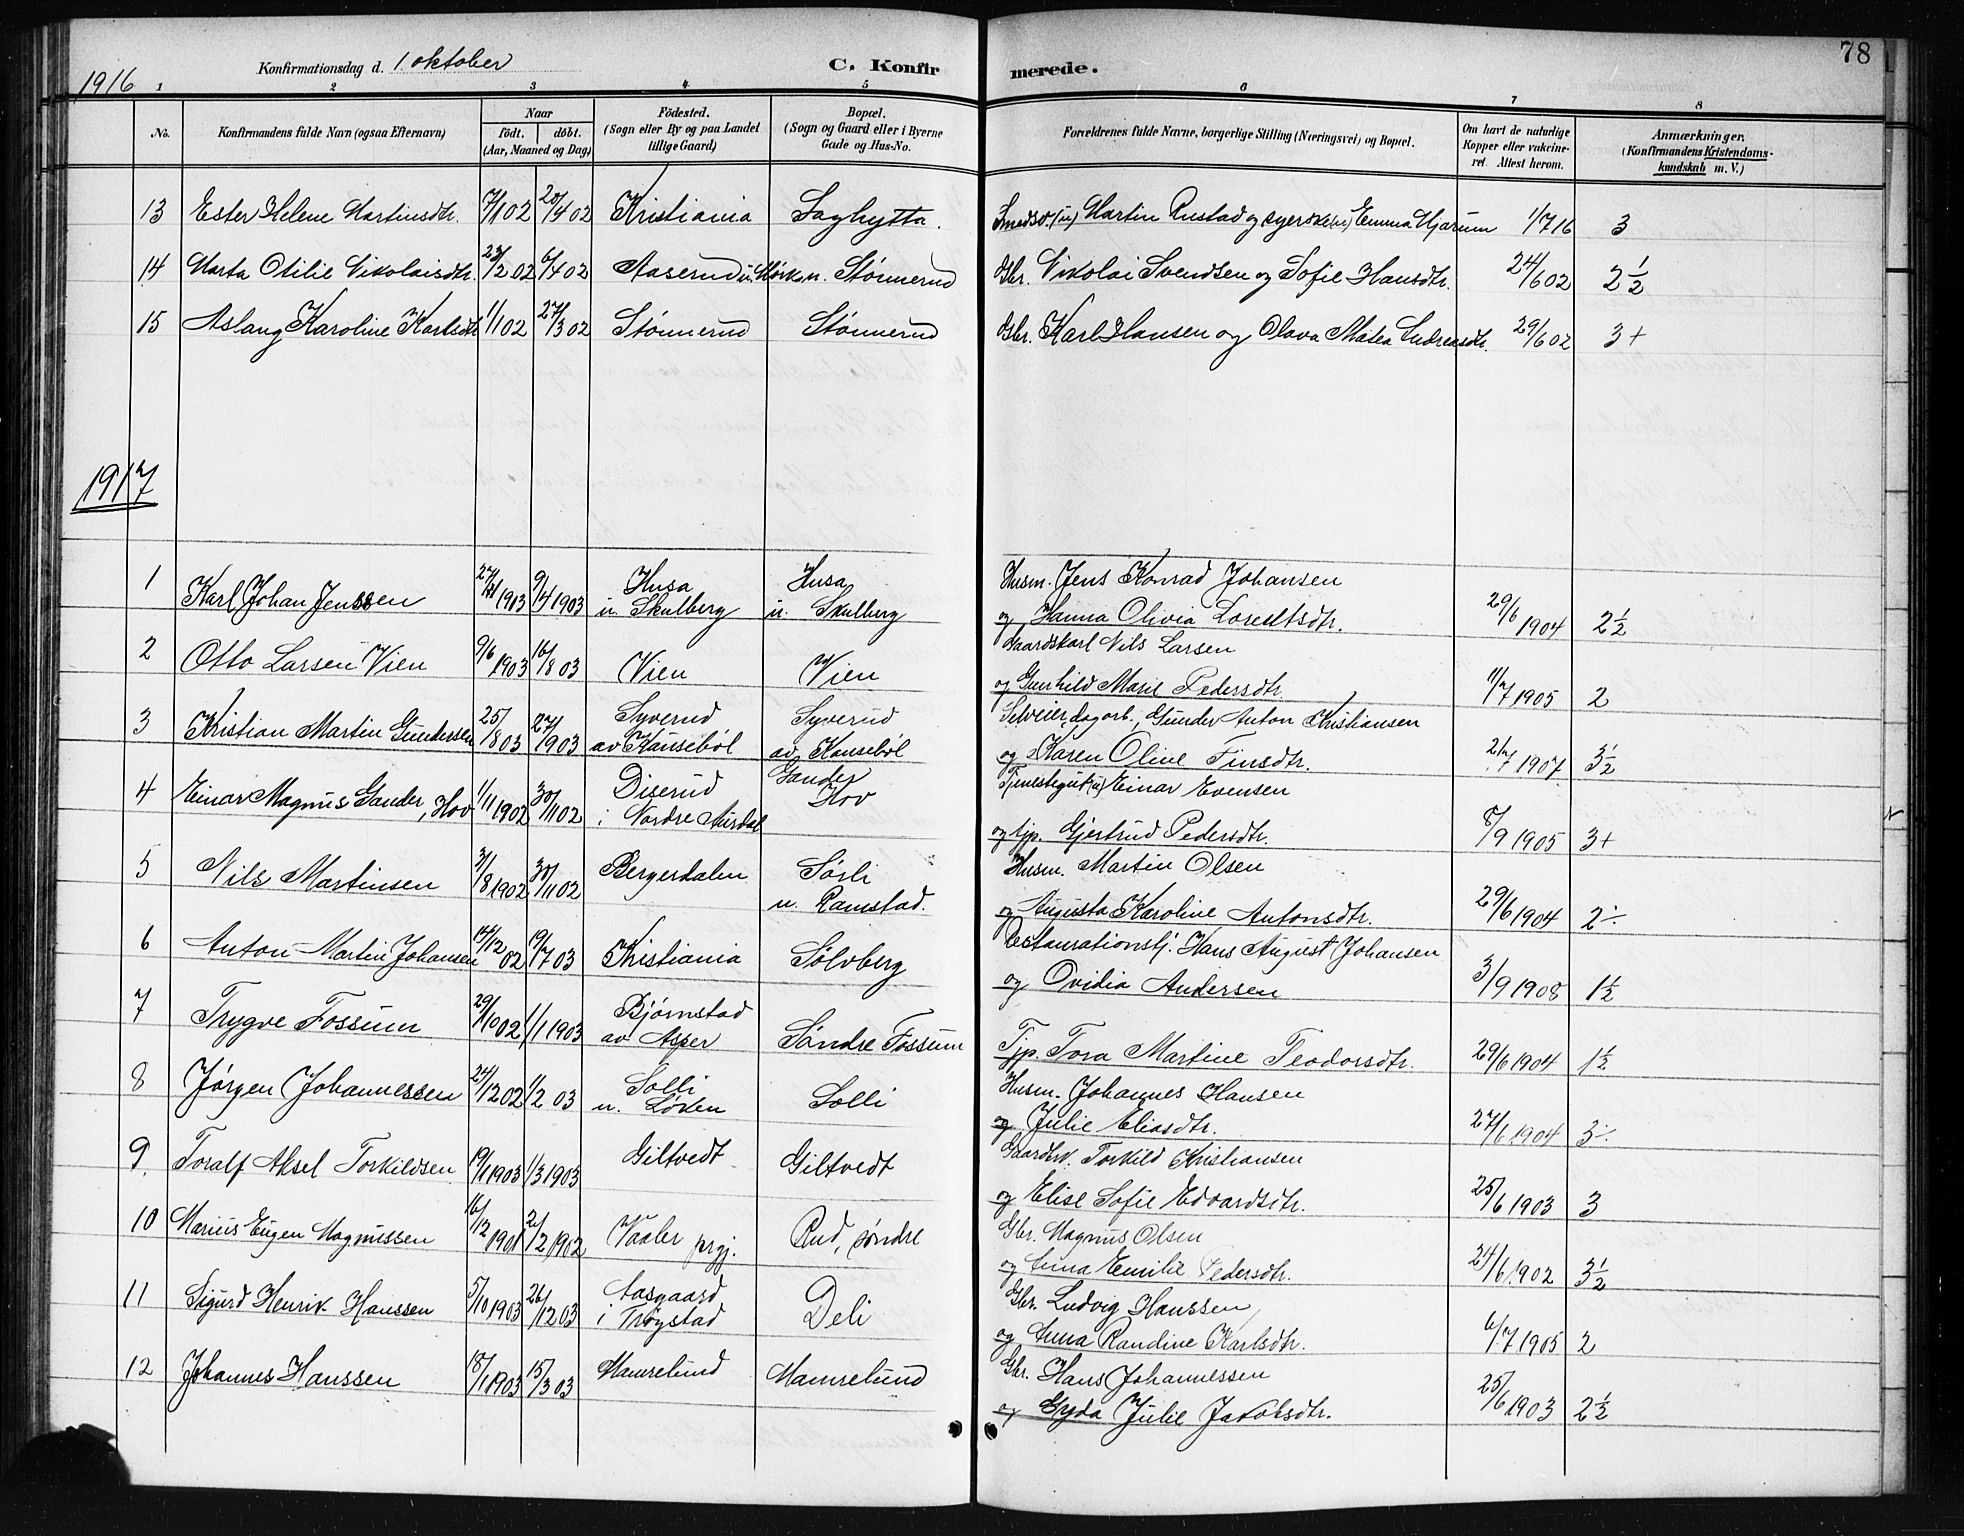 78
1916 Konfirmationsdag d. 1. oktober C. Konfirmerede.
1 2 3 4 5 6 7 8
No. Konfirmandens fulde Navn (ogsaa Efternavn) Naar födt. döbt. (Aar, Maaned og Dag) Födested. (Sogn eller By og paa Landet tillige Gaard) Bopæl. (Sogn og Gaard eller i Byerne Gade og Hus-No. Forældrenes fulde Navne, borgerlige Stilling (Næringsvei) og Bopæl. Om havt de naturlige Kopper eller vakcineret. Attest herom. Anmærkninger. (Konfirmandens Kristendomskundskab m. V.)
13 Ester Helene Martinsdtr. 7/1 02 20/4 02 Kristiania Saghytta. Smedsv. (u) Martin Rustad og syerske (u) Emma Mjørum 1/7 16 3
14 Marta Otilie Nikolaisdtr. 23/2 02 6/4 02 Aaserud u. Mørk n. Stønnerud Gbr. Nikolai Svendsen og Sofie Hansdtr. 24/6 02 2 1/2
15 Aslaug Karoline Karlsdtr 1/1 02 27/3 02 Stønnerud Stønnerud Gbr. Karl Hansen og Olava Matea Andreasdtr. 29/6 02 3+
1917
1 Karl Johan Jenssen 27/1 1903 9/4 1903 Husa u. Skulberg Husa u. Skulberg Husm. Jens Konrad Johansen
og Hanna Olivia Lorentsdtr. 29/6 1904 2 1/2
2 Otto Larsen Vien 9/6 1903 16/8 03 Vien Vien Gaardskarl Nils Larsen
og Gunhild Marie Pedersdtr. 11/7 1905 2
3 Kristian Martin Gundersen 25/8 03 27/9 03 Syverud av Kauseböl Syverud av Kauseböl Selveier, dagarb., Gunder Anton Kristiansen
og Karen Oline Finsdtr. 2/7 1907 3 1/2
4 Einar Magnus Gander, Hov 1/11 1902 30/11 02 Diserud i Nordre Aurdal Gander Hov Tjenestegut (u) Einar Evensen
og tjp. Gjertrud Pedersdtr. 8/9 1905 3+
5 Nils Martinsen 3/8 1902 30/11 02 Bergerdalen Sørli u. Ramstad. Husm. Martin Olsen
og Augusta Karoline Antonsdtr. 29/6 1904 2÷
6 Anton Martin Johansen 14/12 02 19/7 03 Kristiania Sölvberg Restaurationstj. Hans August Johansen
og Ovidia Andersen 3/9 1908 1 1/2
7 Trygve Fossum 29/10 02 1/1 1903 Bjørnstad av Asper Søndre Fossum Tjp. Tora Martine Teodorsdtr. 29/6 1904 1 1/2
8 Jørgen Johannessen 24/12 02 1/2 03 Solli u. Løken Solli Husm. Johannes Hansen
og Julie Eliasdtr. 27/6 1904 3÷
9. Toralf Aksel Torkildsen 19/1 1903 1/3 1903 Giltvedt Giltvedt Gaardbr. Torkild Kristiansen
og Elise Sofie Edvardsdtr. 25/6 1903 3
10 Marius Eugen Magnussen 16/12 1901 2/2 1902 Vaaler prgj. Rud, søndre Gbr. Magnus Olsen
og Anna Emilie Pedersdtr. 24/6 1902 3 1/2
11 Sigurd Henrik Hanssen 5/10 1903 26/12 03 Aasgaard i Trøgstad Deli Gbr. Ludvig Hanssen
og Anna Randine Karlsdtr. 6/7 1905 2
12 Johannes Hanssen 18/1 1903 15/3 03 Mamrelund Mamrelund Gbr. Hans Johannessen
og Gyda Julie Jakobsdtr. 25/6 1903 2 1/2